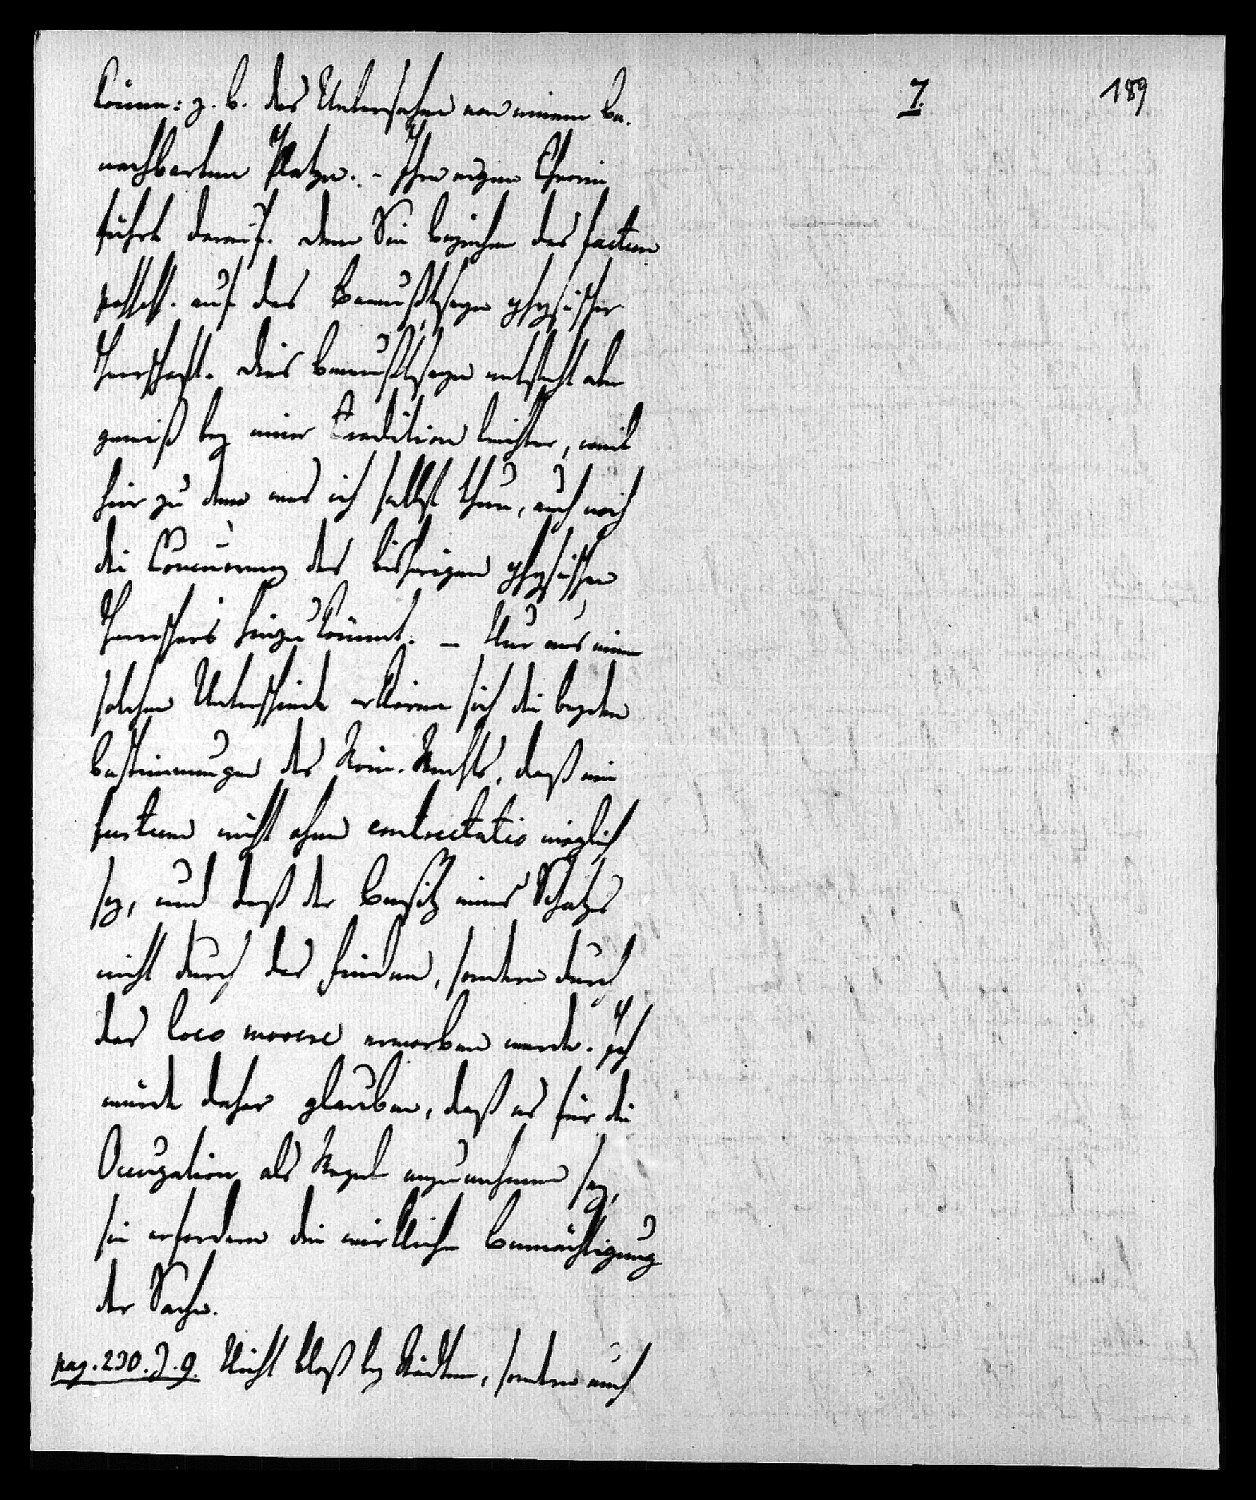 7.
189
könne: z. b. das Untersehen von einem be-
nachbarten Platze. - Ihre eigene Theorie
führt darauf. Denn Sie beziehen das factum
possess. auf das Bewußtseyn physischer
Herrschaft. Dies Bewußtseyn entsteht aber
gewiß bey einer Tradition leichter, weil
hier zu dem was ich selbst thue, auch noch
die Concurrenz des bisherigen physischen
Herrschers hinzukömmt. – Nur aus einem
solchen Unterschiede erklären sich die beyden
Bestimmungen des Röm. Rechts, daß ein
furtum nicht ohne contrectatio möglich
sey, und daß der Besitz eines Schatzes
nicht durch das finden, sondern durch
das loco movere erworben werde. Ich
würde daher glauben, daß es für die
Occupation als Regel anzunehmen sey,
sie erfordere die wirkliche Bemächtigung
der Sache.
pag. 230. §. 9. Nicht bloß bey Städten, sondern auch